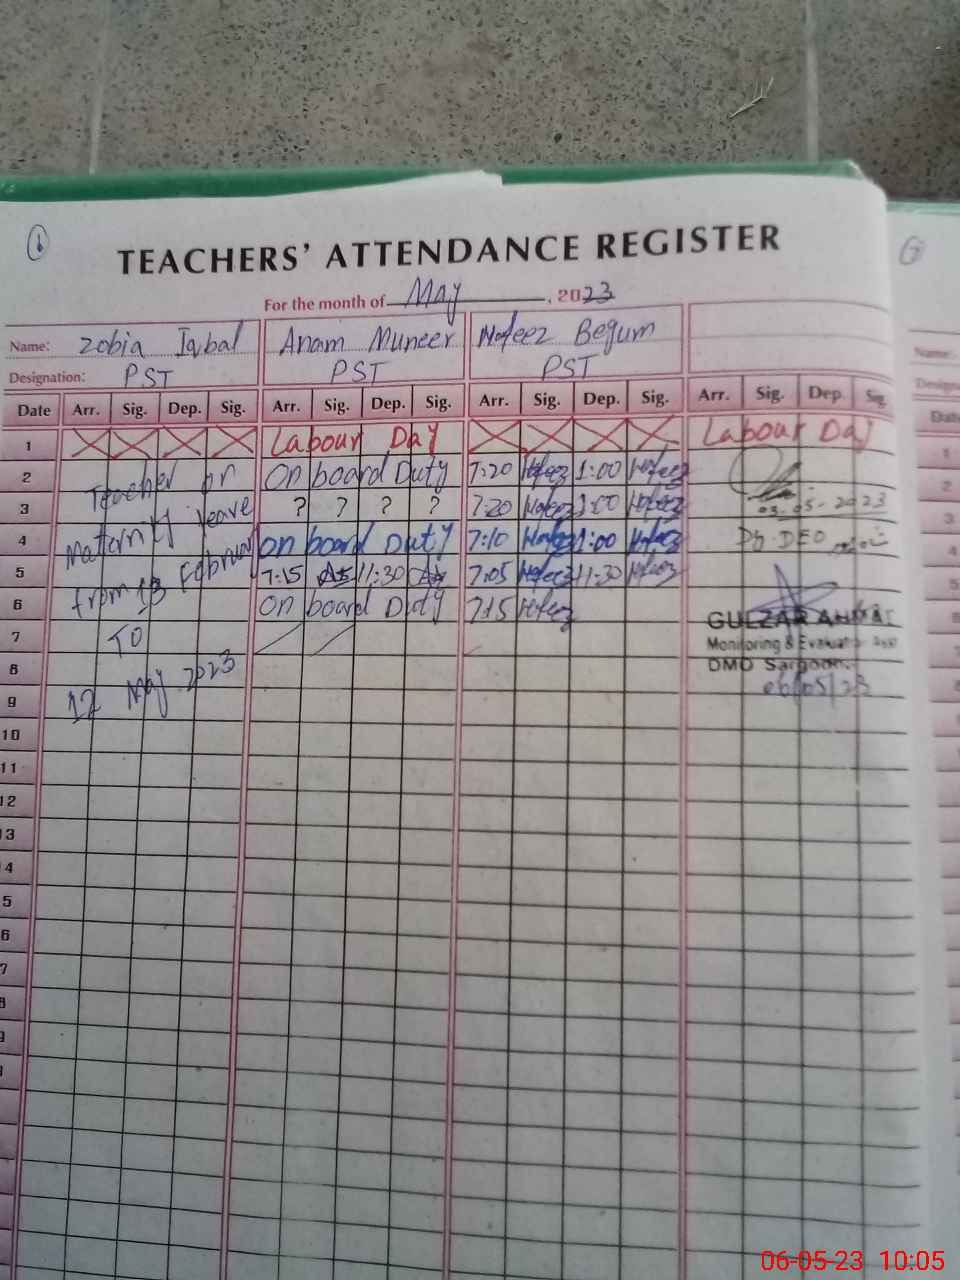 1
TEACHERS' ATTENDANCE REGISTER
For the month of May, 2023
Name: Zobia Iqbal Anam Muneer Hafeez Begum Name:
Designation: PST PST PST
Date Arr. Sig. Dep. Sig. Arr. Sig. Dep. Sig. Arr. Sig. Dep. Sig. Arr. Sig. Dep. Sig
1 Labour Day Labour Day 1
2 Teacher on On board Duty 7:20 Hafeez 1:00 Hafeez 2
3 Maternity leave ? ? ? ? 7:20 Hafeez 1:00 Hafeez 03.05.2023 3
4 from 13 February On board Duty 7:10 Hafeez 1:00 Hafeez Dy. DEO 4
5 7:15 11:30 7:05 Hafeez 11:30 Hafeez
6 On board Duty 7:15 Hafeez GULZAR AHMAD
7 TO Monitoring & Evaluation
8 12 May 2023 DMO Sargodha
9 06/05/23
10
11
12
3
4
5
6
7
8
9
06-05-23 10:05